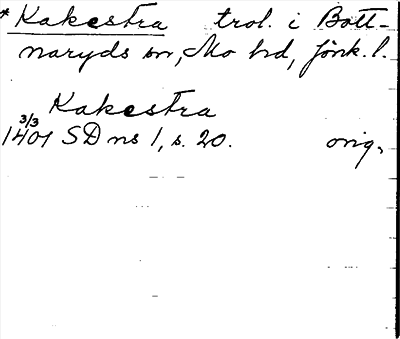 * Kakestra trol. i Bott-
naryds sn, Mo hd, Jönk. l.
Kakestra
3/3
1401 SD ns 1, s. 20. orig.